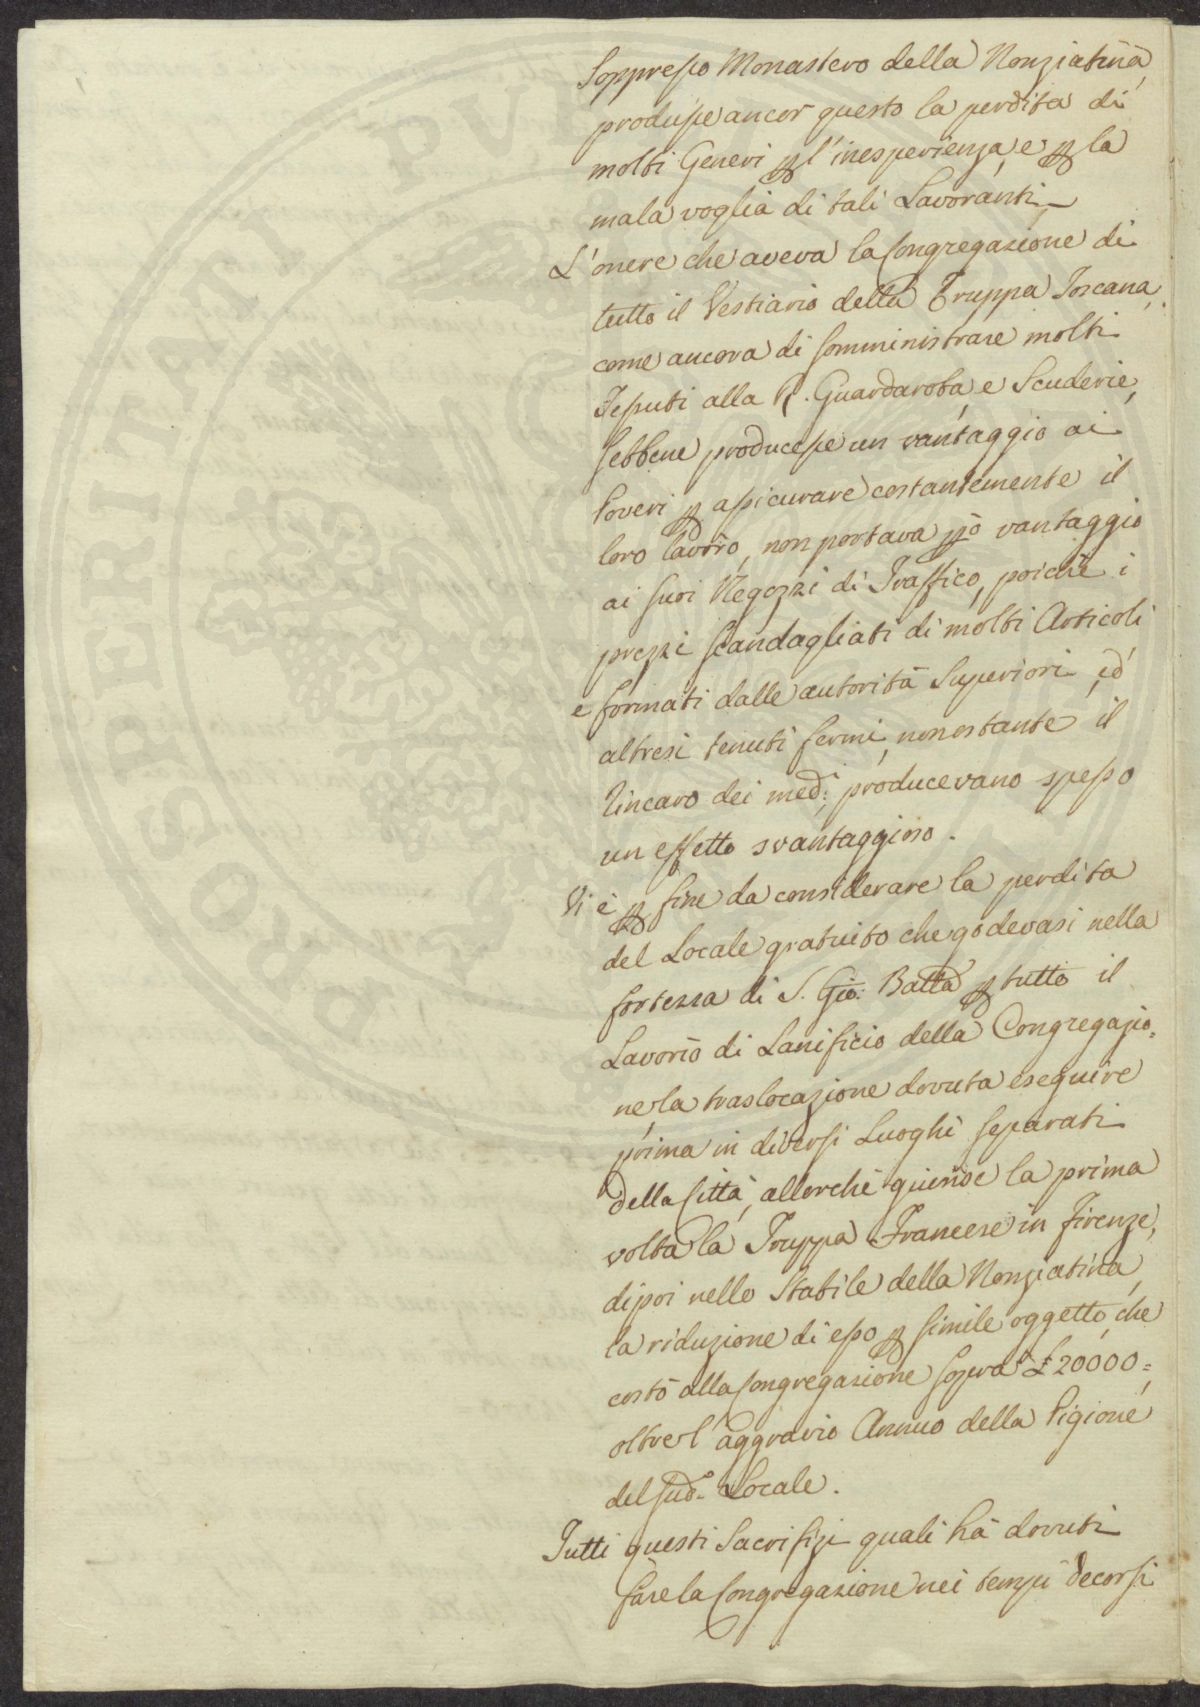 Soppresso Monastero della Nonziatina,
produsse ancor questo la perdita di
molti Generi p l'inesperienza, e p la
mala voglia di tali Lavoranti
L'onere che aveva la Congregazione di
tutto il Vestiario della Truppa Toscana,
come ancora di somministrare molti
Tessuti alla R. Guardaroba, e Scuderie,
sebbene producesse un vantaggio ai
Poveri p assicurare costantemente il
loro lavoro, non portava pò vantaggio
ai suoi Negozzi di Traffico, poichè i
prezzi scandagliati di molti Articoli
e formati dalle autorità Superiori, ed
altresì tenuti fermi, nonostante il
rincaro dei med:i, producevano spesso
un effetto svantaggioso.
Vi è p fine da considerare la perdita
del Locale gratuito che godevasi nella
fortezza di S. Gio: Batta p tutto il
Lavorio di Lanificio della Congregazio=
ne, la traslocazione dovuta eseguire
prima in diversi Luoghi separati
della Città, allorchè giunse la prima
volta la Truppa Francese in Firenze,
di poi nello Stabile della Nonziatina,
la riduzione di esso p simile oggetto, che
costò alla Congregazione sopra £ 20000=,
oltre l'aggravio Annuo della Pigione
del sud.o Locale.
Tutti questi Sacrifizi quali hà dovuti
fare la Congregazione nei tempi decorsi